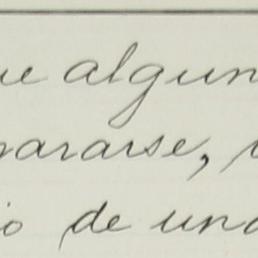 ue algun
pararse,
io de una